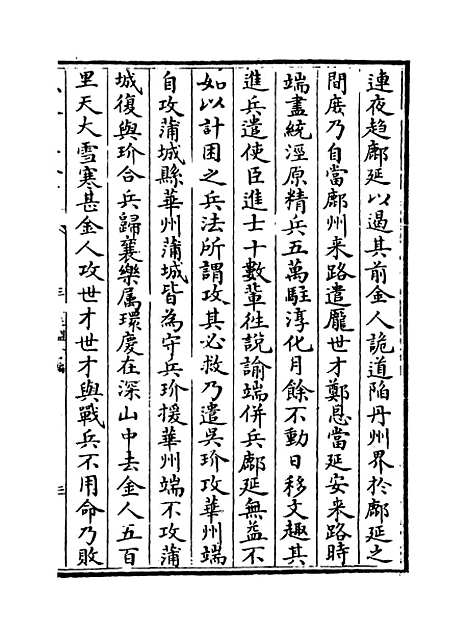 連夜趋鄜延以遏其前金人詭道陷丹州界於鄜延之
間庶乃自當鄜州来路遣龐世才鄭恩當延安来路時
端盡統涇原精兵五萬駐淳化月餘不動日移文趣其
進兵遣使臣進士十數軰徃說諭端併兵鄜延無益不
如以計困之兵法所謂攻其必救乃遣吳玠攻華州端
自攻蒲城縣華州蒲城皆為守兵玠援華州端不攻蒲
城復與玠合兵歸襄樂属環慶在深山中去金人五百
里天大雪寒甚金人攻世才世才與戰兵不用命乃敗
三